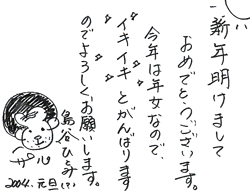 新年明けまして
おめでとうございます。
今年は年女なので、
イキイキとがんばります
のでよろしくお願いします。
島谷ひとみ
サル
2004.元旦